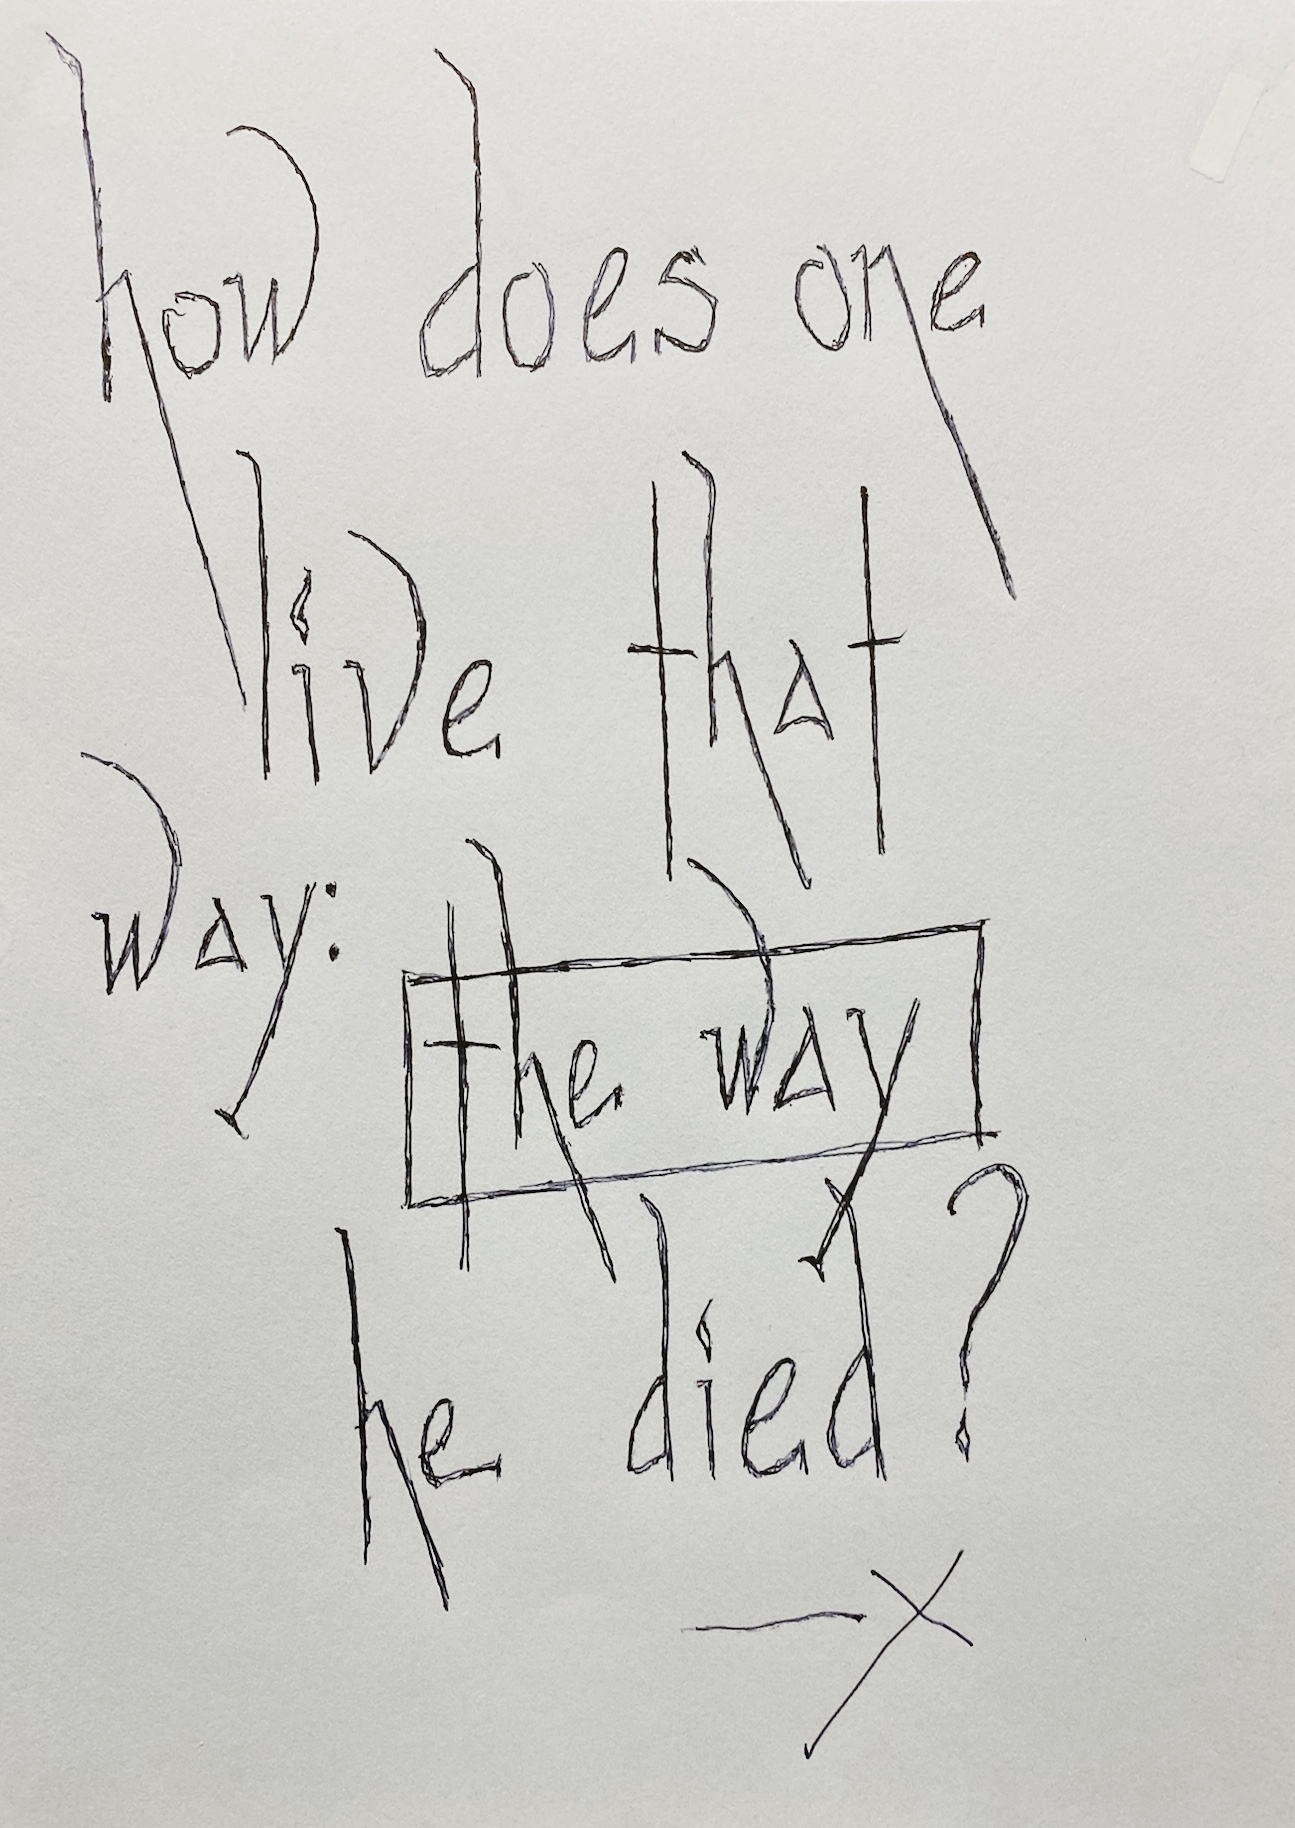 how does one
live that
way: the way
he died?
—X